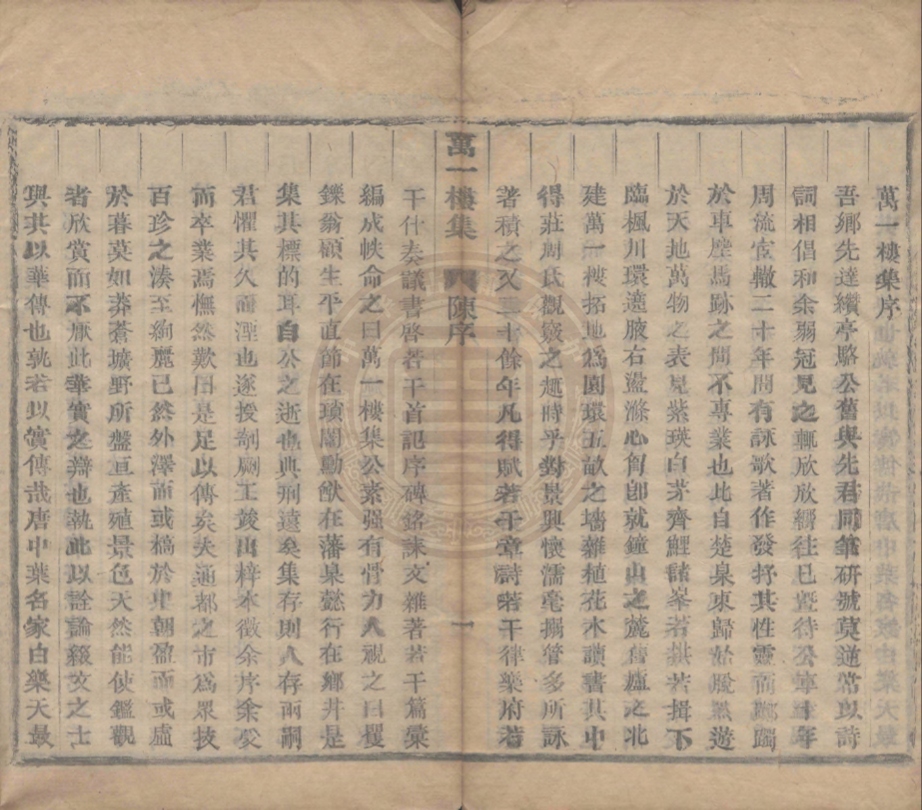 萬一樓集序
吾鄉先達纘亭駱公舊與先君同筆研號莫逆常以詩
詞相倡和余弱冠見之輒欣欣嚮往已暨待公車十年
周流宦轍二十年間有詠歌著作發抒其性靈而躑躅
於車塵馬跡之間不專業也比自楚臬東歸始脫然遊
於天地萬物之表見紫瑛白茅齊鯉諸峯若拱若揖下
臨楓川環遶腋右盪滌心胷卽就鐘山之麓舊廬之北
建萬一樓拓地爲園環五畝之墻雜植花木讀書其中
得莊周氏觀竅之趣時乎對景興懷濡毫搦管多所詠
著積之又三十餘年凡得賦若干章詩若干律樂府若
萬一樓集 陳序 一
干什奏議書啓若干首記序碑銘誄文雜著若干篇彙
編成帙命之曰萬一樓集公素强有骨力人視之曰矍
鑠翁碩生平直節在瑣闥勳猷在藩臬懿行在鄉井是
集其標的耳自公之逝也典刑遠矣集存則人存而嗣
君懼其久而湮也遂授剞劂工竣出梓本徵余序余受
而卒業焉憮然歎曰是足以傳矣夫通都之市爲眾技
百珍之湊至絢麗已然外澤而或槁於中朝盈而或虛
於暮莫如莽蒼壙野所盤亘產殖景色天然能使鑑觀
者欣賞而不厭此華實之辯也執此以詮論綴文之士
與其以華傳也孰若以實傳哉唐中葉名家白樂天最